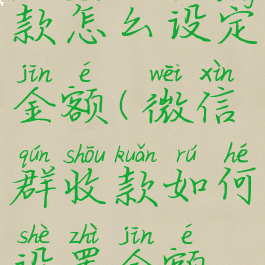 款怎么设定
jīn é wēi xìn
金额(微信
qún shōu kuǎn rú hé
群收款如何
shè zhì jīn é
设置金额